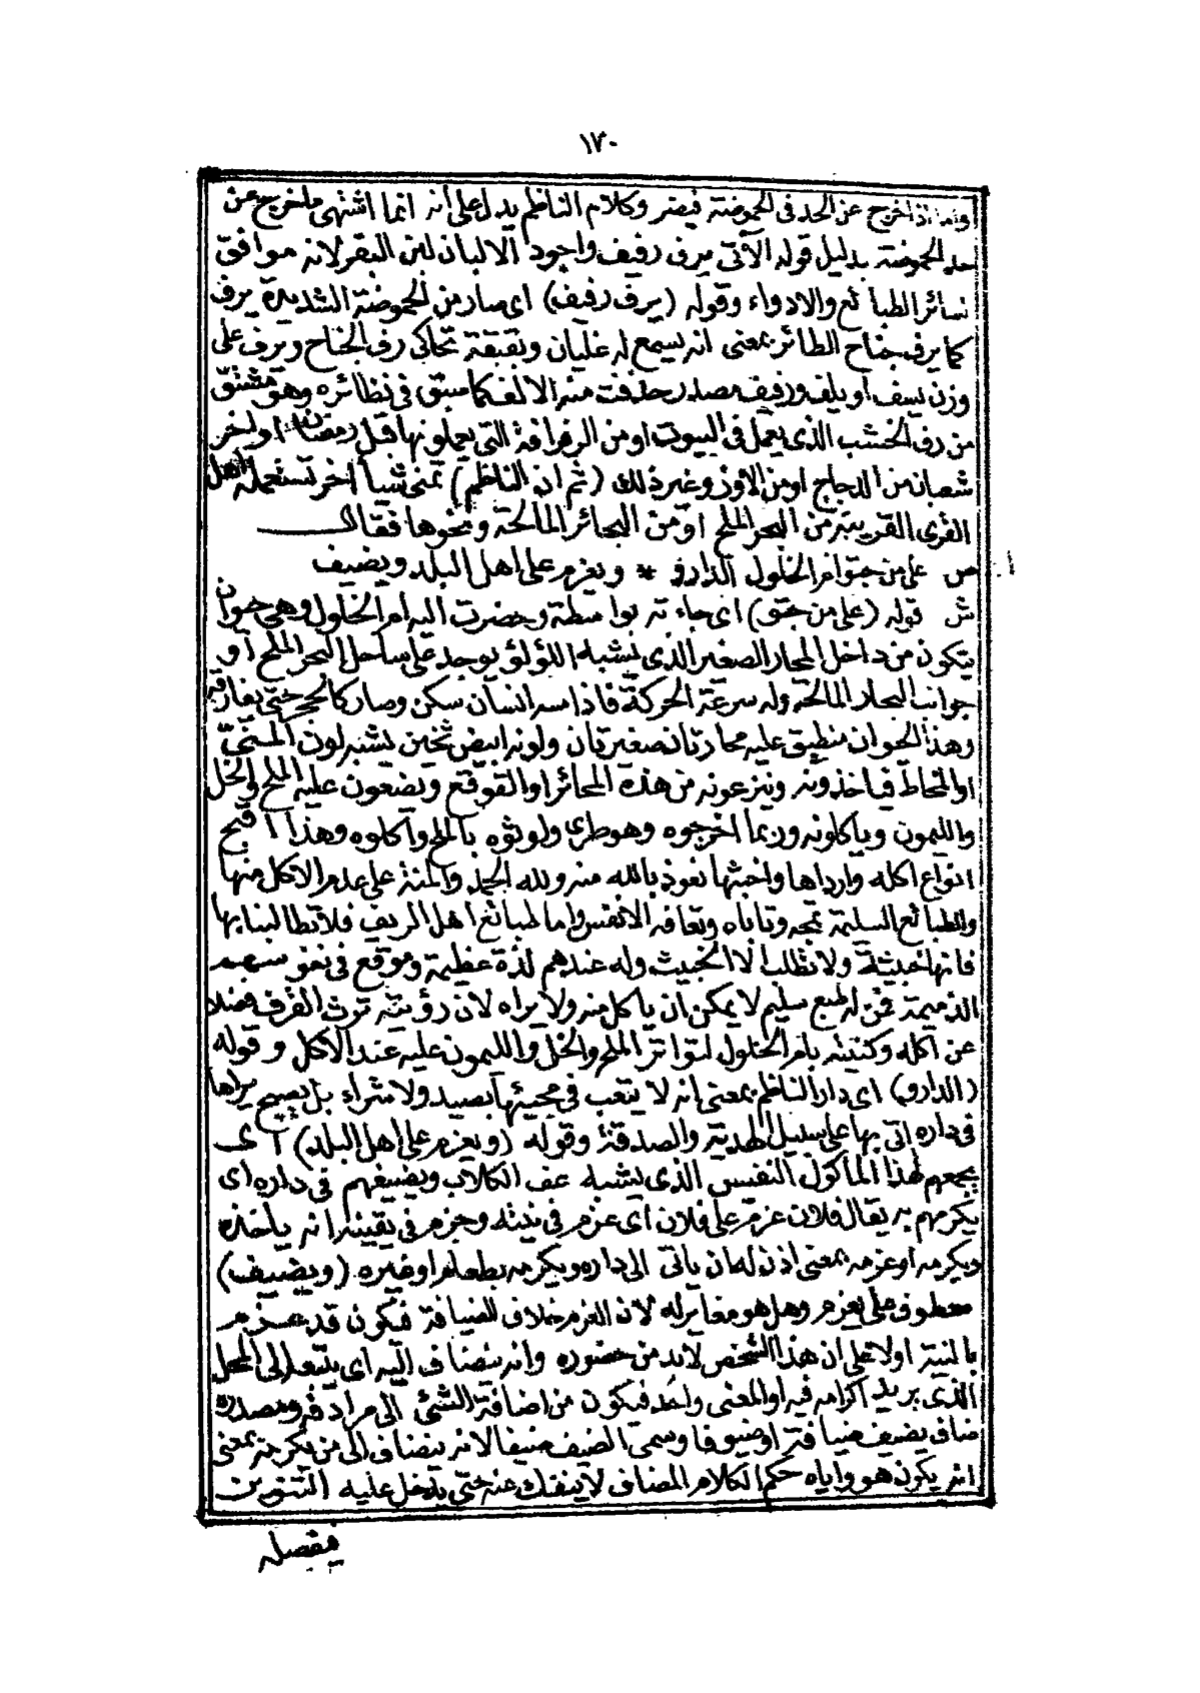 ١٧٠
واما اذا خرج عن الحد فى الحموضة فيضر وكلام الناظم يدل على أنه انما اشتهى ما خرج عن
حد الحموضة بدليل قوله الآتى يرف رفيف واجود الالبان لبن البقر لانه موافق
لسائر الطبائع والادواء وقوله (يرف رفيف) اى صار من الحموضة الشديدة يرف
كما يرف جناح الطائر بمعنى انه يسمع له غليان وبقبقة تحاكى رف الجناح ويرف على
وزن يسف او يلف ورفيف مصدر حذفت منه الالف كما سبق فى نظائره وهو مشتق
من رف الخشب الذى يعمل فى البيوت او من الرفرافة التى يعملونها قبل رمضان اواخر
شعبان من الدجاج او من الاوز وغير ذلك (ثم ان الناظم) تمنى شيأ اخر تستعمله اهل
القرى القريبة من البحر الملح او من البحائر المالحة ونحوها فقال
ص على من جتو ام الخلول الدارو * ويعزم على اهل البلد ويضيف
ش قوله (على من جتو) اى جاءته بواسطة وحضرت اليه ام الخلول وهى حيوان
يتكون من داخل المحار الصغير الذى يشبه اللؤلؤ يوجد على ساحل البحر الملح او
جوانب البحار المالحة وله سرعة الحركة فاذا مسه انسان سكن وصار كالحجر حتى يفارقه
وهذا الحيوان منطبق عليه محارتان صغيرتان ولونه ابيض ثخين يشبه لون المنىّ
او المخاط فياخذونه وينزعونه من هذه المحائر او القوقع ويضعون عليه الملح والخل
والليمون وياكلونه وربما اخرجوه وهو طرى ولوثوه بالملح واكلوه وهذا اقبح
انواع اكله وارداها واخبثها نعوذ بالله منه ولله الحمد والمنة على عدم الاكل منها
والطبائع السليمة تمجه وتاباه وتعافه الانفس واما طبائع اهل الريف فلا تطالبنا بها
فانها خبيثة ولا تطلب الا الخبيث وله عندهم لذة عظيمة وموقع فى نفوسهم
الذميمة فمن له طبع سليم لا يمكن ان ياكل منه ولا يراه لان رؤيته ترث القرف فضلا
عن اكله وكنيته بام الخلول لتواتر الملح والخل والليمون عليه عند الاكل وقوله
(الدارو) اى دار الناظم بمعنى انه لا يتعب فى مجيئها بصيد ولا شراء بل يصبح يراها
فى داره اتى بها على سبيل الهدية والصدقة وقوله (ويعزم على اهل البلد) اى
يجمعهم لهذا الماكول النفيس الذى يشبه عف الكلاب ويضيفهم فى داره اى
يكرمهم به يقال فلان عزم على فلان اى عزم فى نيته وجزم فى يقينه انه ياخذه
ويكرمه او عزمه بمعنى اذن له ان ياتى الى داره ويكرمه بطعام او غيره (ويضيف)
معطوف على يعزم وهل هو مغاير له لان العزم خلاف الضيافة فيكون قد عزم
بالنية اولا على ان هذا الشخص لابد من حضوره وانه ينضاف اليه اى يتبعه الى المحل
الذى يريد اكرامه فيه او المعنى واحد فيكون من اضافة الشئ الى مرادفه ومصدره
ضاف يضيف ضيافة او ضيوفا وسمى الضيف ضيفا لانه ينضاف الى من يكرمه بمعنى
انه يكون هو واياه حكم الكلام المضاف لا ينفك عنه حتى يدخل عليه التنوين
فيفصله